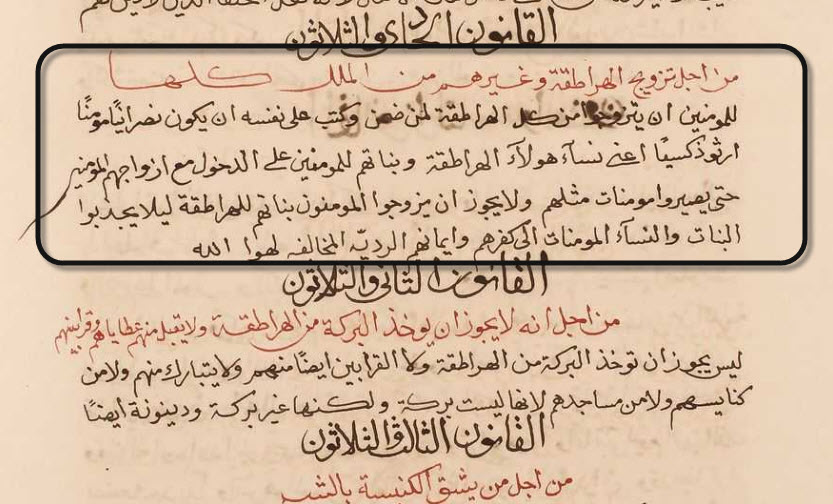 القانون الحادي والثلاثون
من اجل تزويج الهراطقة وغيرهم من الملل كلها
للمومنين ان يتزوجوا من كل الهراطقة لمن ضمن وكتب على نفسه ان يكون نصرانيًا مومنًا
ارثوذكسيًا اعني نسآء هولآء الهراطقة وبناتهم للمومنين على الدخول مع ازواجهم المومنين
حتى يصيروا مومنات مثلهم ولا يجوز ان يزوجوا المومنون بناتهم للهراطقة ليلا يجذبوا
البنات والنسآء المومنات الى كفرهم وايمانهم الرديّه المخالفه لهوا الله
القانون الثاني والثلاثون
من اجل انه لا يجوز ان يوخذ البركة من الهراطقة ولا يقبل منهم عطاياهم وقرابينهم
ليس يجوز ان توخذ البركة من الهراطقة ولا القرابين ايضًا منهم ولا يتبارك منهم ولا من
كنايسهم ولا من مساجدهم لانها ليست بركة ولكنها غير بركة ودينونة ايضًا
القانون الثالث والثلاثون
من اجل من يشق الكنيسة بالشر